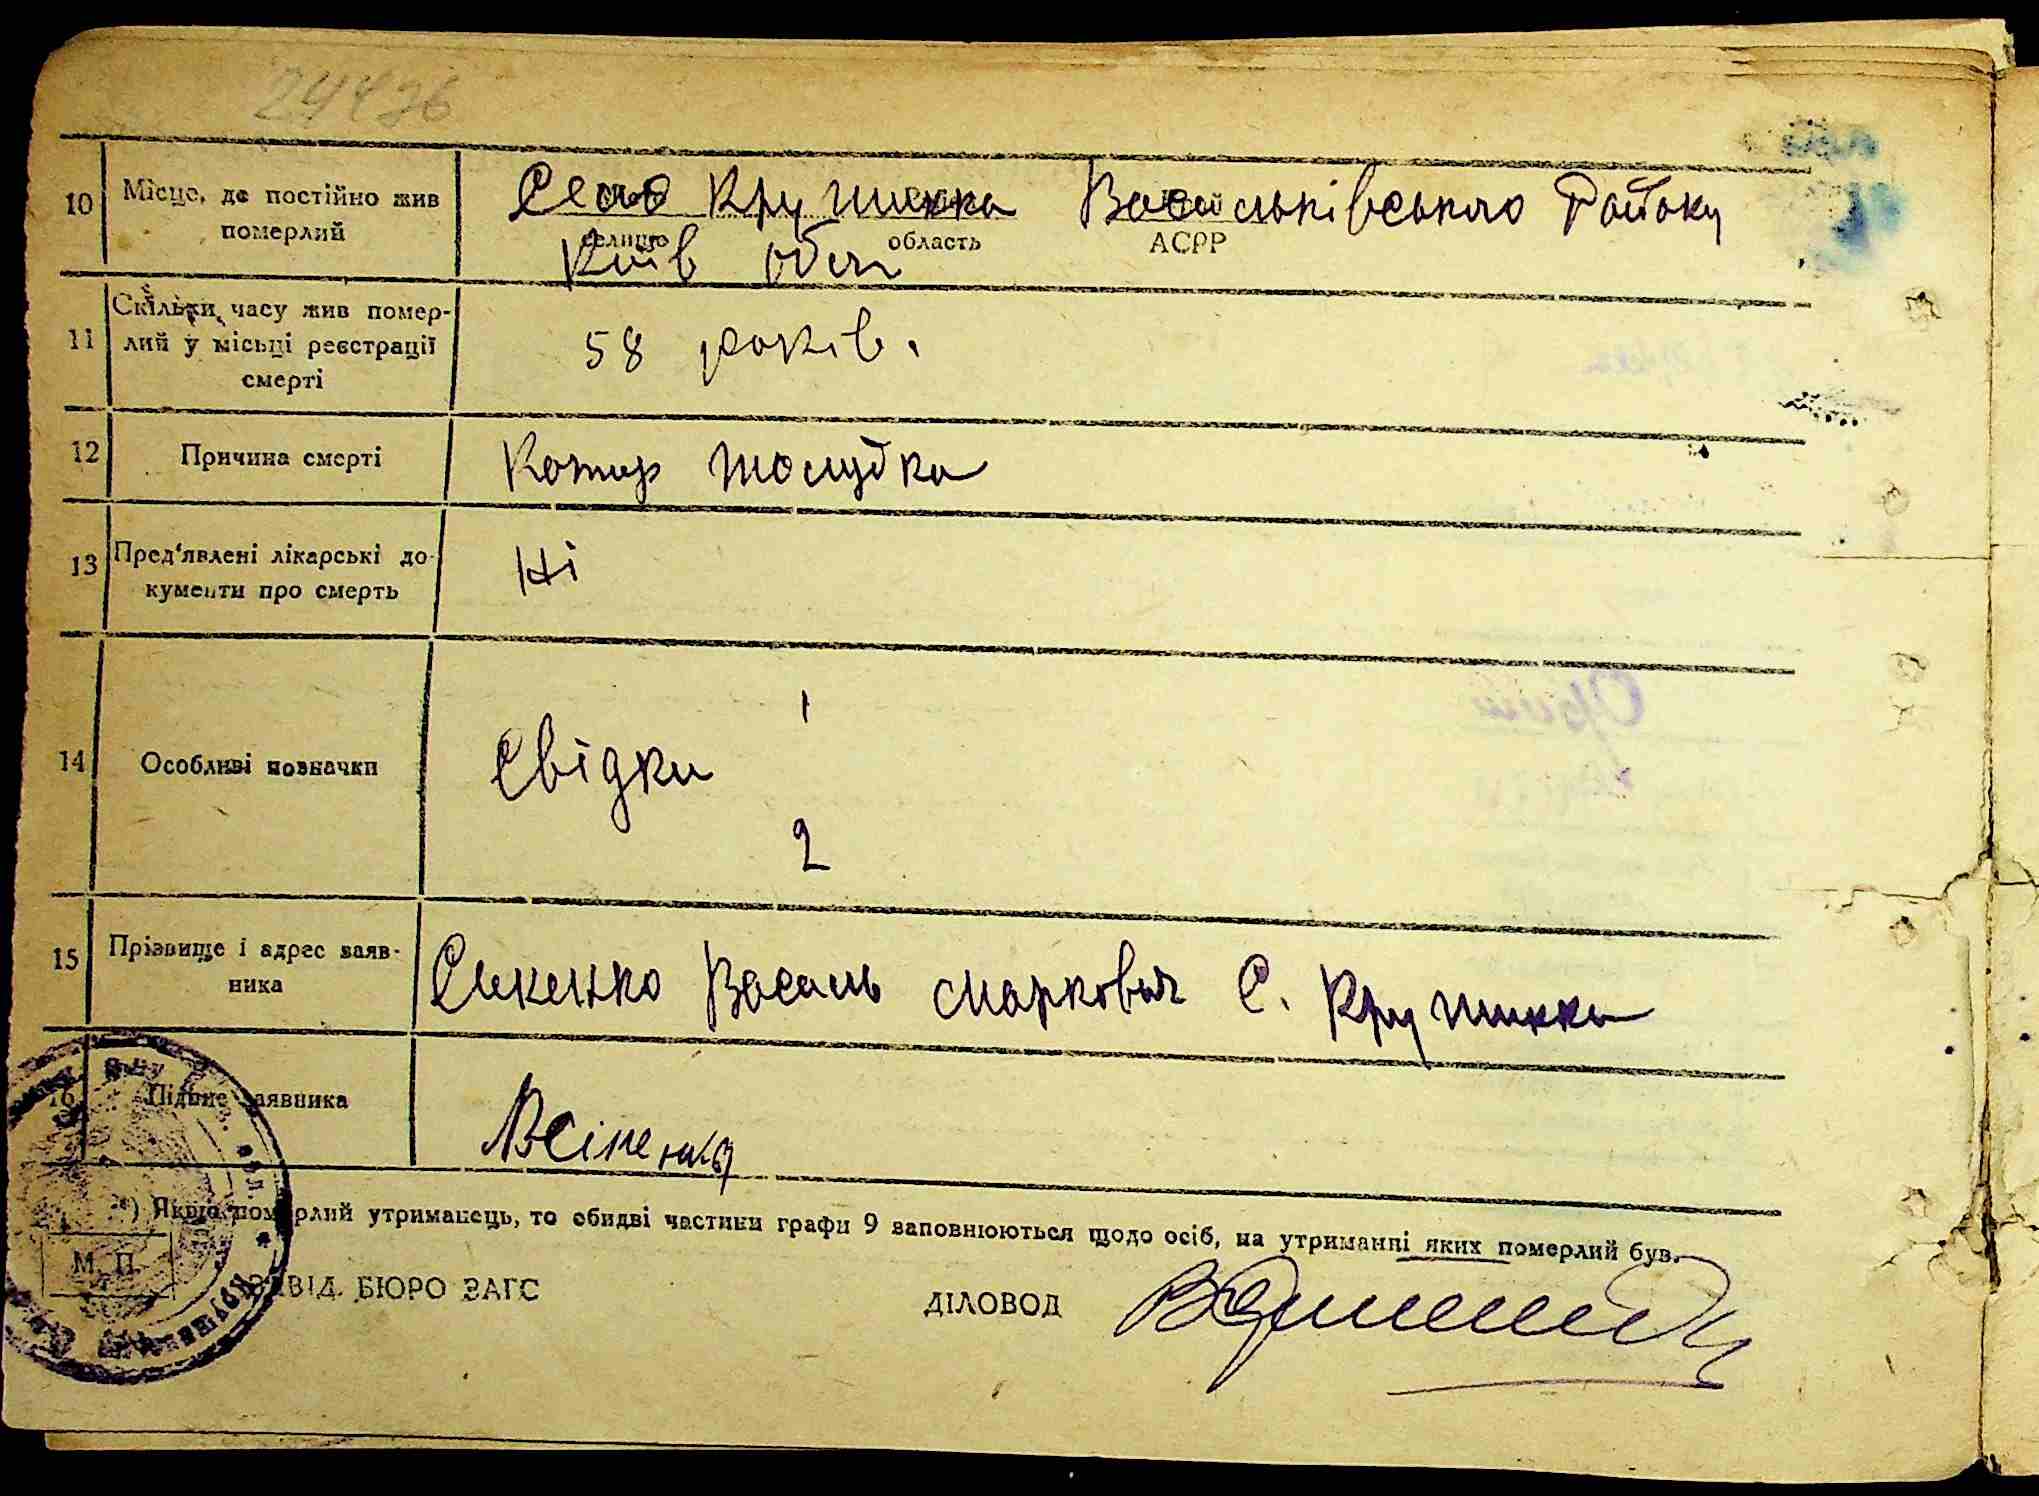 24426
10 Місце, де постійно жив померлий
Село Крушинка Васильківського Району
селище область АСРР
Київ обл
11 Скільки часу жив помер-
лий у місьці реєстрації
смерті
58 років.
12 Причина смерті
Катар жолудка
13 Пред'явлені лікарські до-
кументи про смерть
Ні
14 Особливі позначки
1
Свідки
2
15 Прізвище і адрес заяв-
ника
Сикенко Василь Маркович С. Крушинка
16 Підпис заявника
*) Якщо померлий утриманець, то обидві частини графи 9 заповнюються щодо осіб, на утриманні яких померлий був.
М. П.
ЗАВІД. БЮРО ЗАГС
ДІЛОВОД